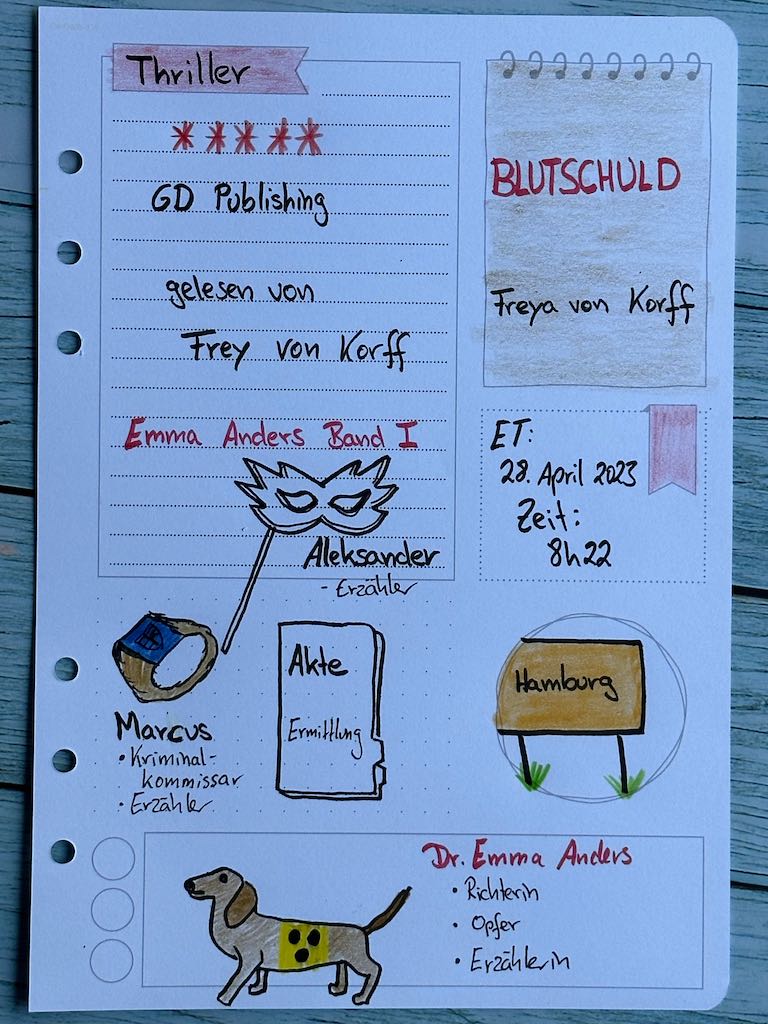 Thriller
*****
GD Publishing
gelesen von
Frey von Korff
Emma Anders Band I
Aleksander
- Erzähler
BLUTSCHULD
Freya von Korff
ET:
28. April 2023
Zeit:
8h22
Marcus
• Kriminal-
kommissar
• Erzähler
Akte
Ermittlung
Hamburg
Dr. Emma Anders
• Richterin
• Opfer
• Erzählerin